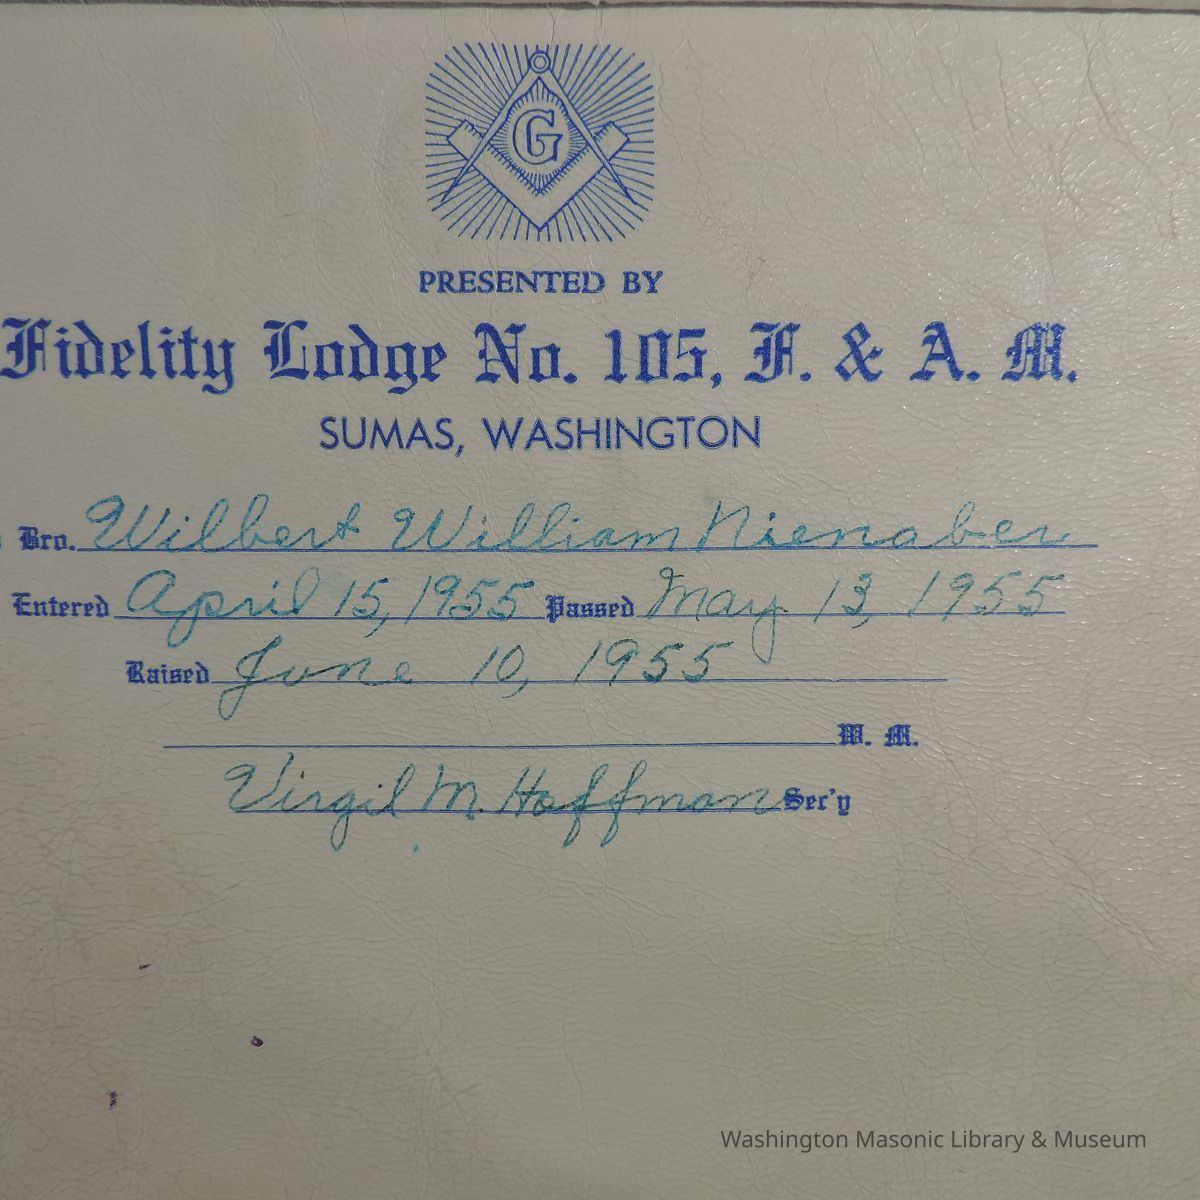 G
PRESENTED BY
Fidelity Lodge No. 105, F. & A. M.
SUMAS, WASHINGTON
Bro. Wilbert William Nienaber
Entered April 15, 1955 Passed May 13, 1955
Raised June 10, 1955
W. M.
Virgil M. Hoffman Sec'y
Washington Masonic Library & Museum